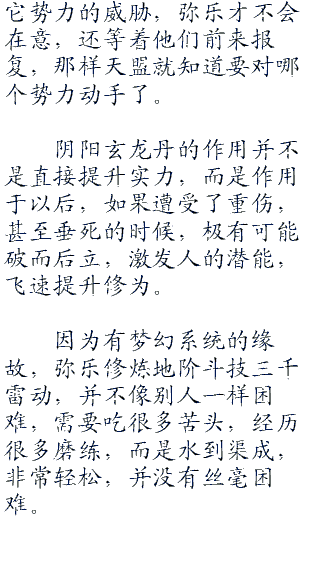 它势力的威胁，弥乐才不会
在意，还等着他们前来报
复，那样天盟就知道要对哪
个势力动手了。
阴阳玄龙丹的作用并不
是直接提升实力，而是作用
于以后，如果遭受了重伤，
甚至垂死的时候，极有可能
破而后立，激发人的潜能，
飞速提升修为。
因为有梦幻系统的缘
故，弥乐修炼地阶斗技三千
雷动，并不像别人一样困
难，需要吃很多苦头，经历
很多磨练，而是水到渠成，
非常轻松，并没有丝毫困
难。